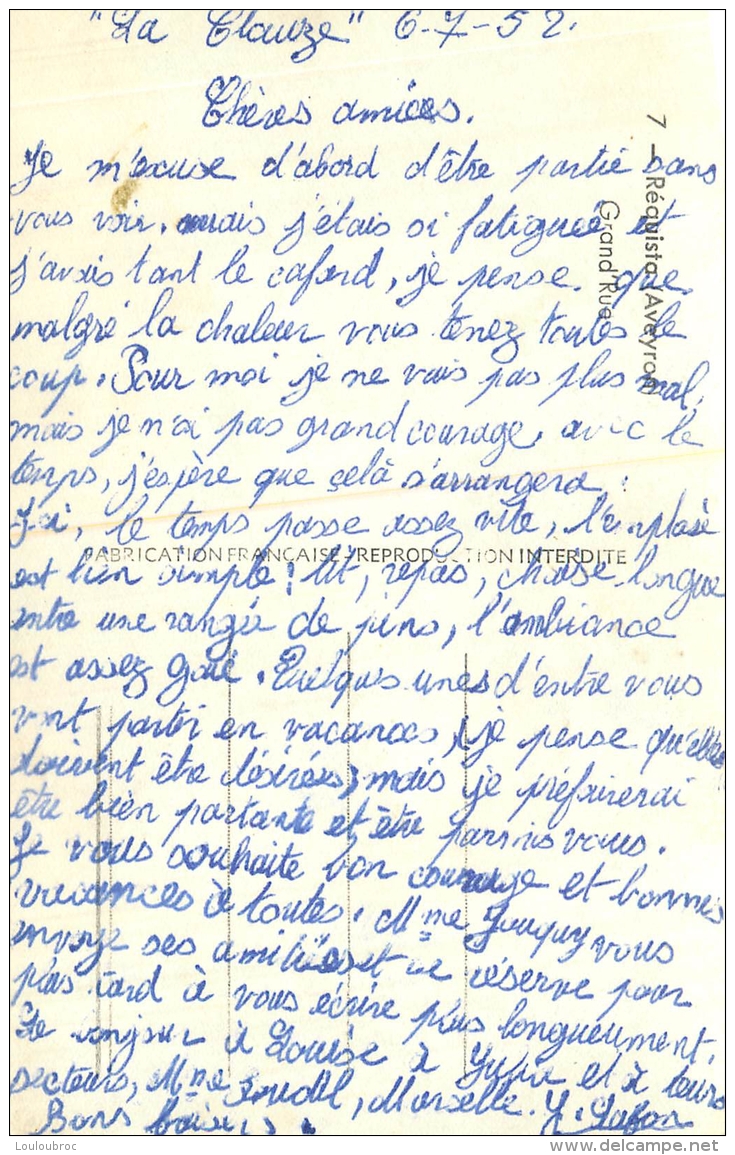 "La Clauze" 6-7-52.
Chères amies.
Je m'excuse d'abord d'être partie sans
vous voir, mais j'étais si fatiguée et
j'avais tant le cafard, je pense que
malgré la chaleur vous tenez toutes le
coup. Pour moi je ne vais pas plus mal,
mais je n'ai pas grand courage, avec le
temps, j'espère que celà s'arrangera.
Ici, le temps passe assez vite, l'emploi
est bien simple: lit, repas, chaise longue
entre une rangée de pins, l'ambiance
est assez gaie. Quelques unes d'entre vous
vont partir en vacances, je pense qu'elles
doivent être désirées, mais je préfairerai
être bien portante et être parmis vous.
Je vous souhaite bon courage et bonnes
vacances à toutes. Mme vous
envoye ses amitiées et se réserve pour
plus tard à vous écrire plus longuement.
Le bonjour à Louise à et à leurs
secteurs, Mme Marcelle. Y. Lafon
Bons baisers.
7 - Réquista (Aveyron)
Grand'Rue
FABRICATION FRANÇAISE - REPRODUCTION INTERDITE
Louloubroc
delcampe.net